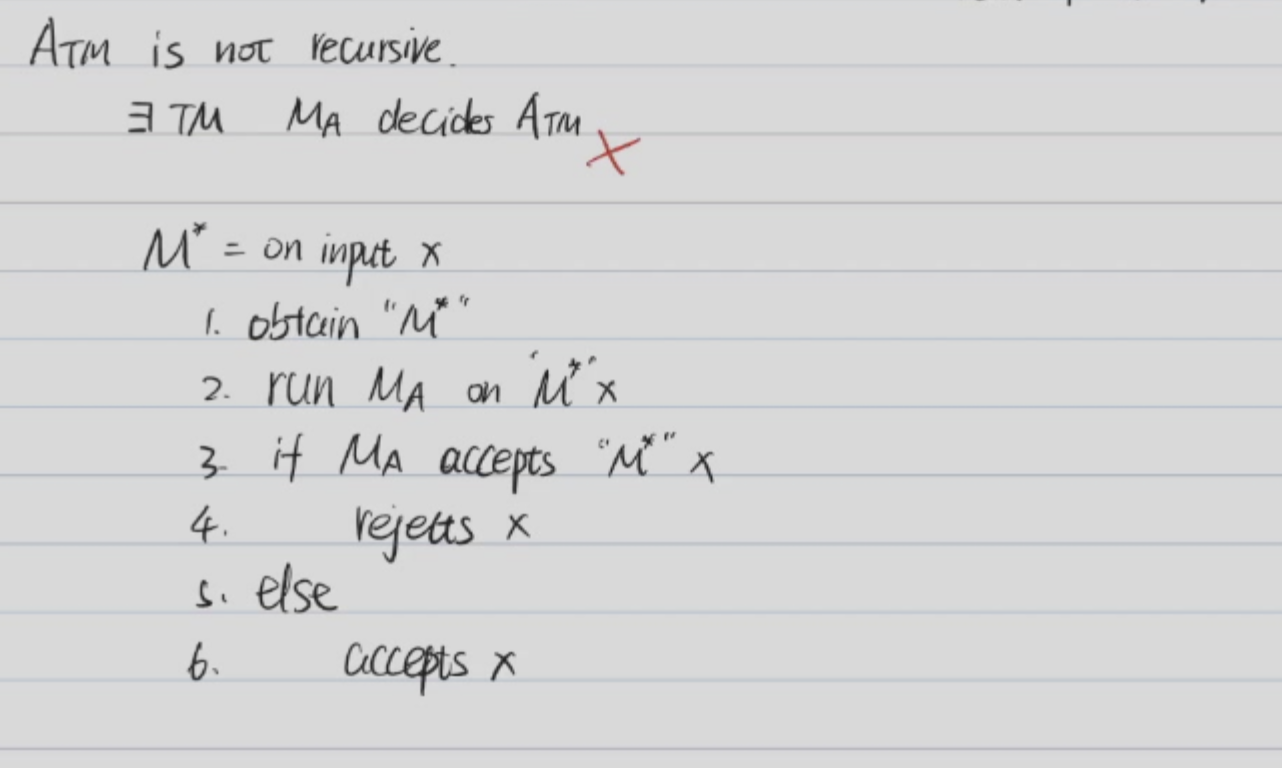 ATM is not recursive.
∃ TM MA decides ATM ×
M* = on input x
1. obtain "M*"
2. run MA on "M*" x
3. if MA accepts "M*" x
4. rejects x
5. else
6. accepts x